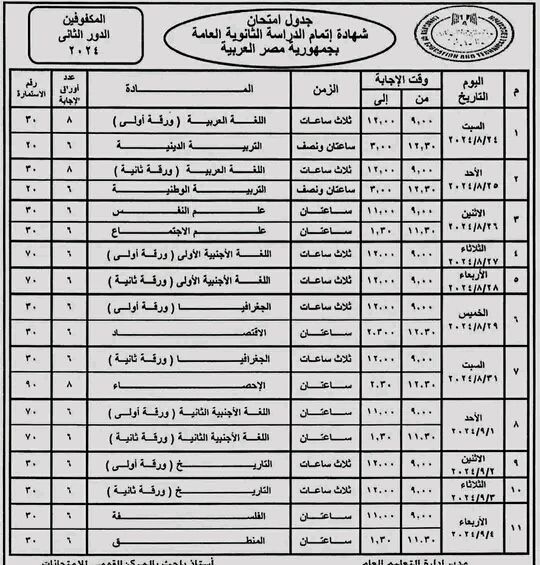 جدول امتحان
شهادة إتمام الدراسة الثانوية العامة
بجمهورية مصر العربية
المكفوفين
الدور الثانى
٢٠٢٤
م اليوم التاريخ وقت الإجابة من إلى الزمن المادة عدد أوراق الإجابة رقم الاستمارة
١ السبت ٢٠٢٤/٨/٢٤ ٩,٠٠ ١٢,٠٠ ثلاث ساعات اللغة العربية ( ورقة أولى ) ٨ ٣٠
١٢,٣٠ ٣,٠٠ ساعتان ونصف التربية الدينية ٦ ٢٠
٢ الأحد ٢٠٢٤/٨/٢٥ ٩,٠٠ ١٢,٠٠ ثلاث ساعات اللغة العربية ( ورقة ثانية ) ٨ ٣٠
١٢,٣٠ ٣,٠٠ ساعتان ونصف التربية الوطنية ٦ ٢٠
٣ الاثنين ٢٠٢٤/٨/٢٦ ٩,٠٠ ١١,٠٠ ساعتان علم النفس ٦ ٣٠
١١,٣٠ ١,٣٠ ساعتان علم الاجتماع ٦ ٣٠
٤ الثلاثاء ٢٠٢٤/٨/٢٧ ٩,٠٠ ١٢,٠٠ ثلاث ساعات اللغة الأجنبية الأولى ( ورقة أولى ) ٦ ٧٠
٥ الأربعاء ٢٠٢٤/٨/٢٨ ٩,٠٠ ١٢,٠٠ ثلاث ساعات اللغة الأجنبية الأولى ( ورقة ثانية ) ٦ ٧٠
٦ الخميس ٢٠٢٤/٨/٢٩ ٩,٠٠ ١٢,٠٠ ثلاث ساعات الجغرافيا ( ورقة أولى ) ٦ ٣٠
١٢,٣٠ ٢,٣٠٠ ساعتان الاقتصاد ٦ ٣٠
٧ السبت ٢٠٢٤/٨/٣١ ٩,٠٠ ١٢,٠٠ ثلاث ساعات الجغرافيا ( ورقة ثانية ) ٦ ٣٠
١٢,٣٠ ٢,٣٠ ساعتان الإحصاء ٨ ٩٠
٨ الأحد ٢٠٢٤/٩/١ ٩,٠٠ ١١,٠٠ ساعتان اللغة الأجنبية الثانية ( ورقة أولى ) ٦ ٧٠
١١,٣٠ ١,٣٠ ساعتان اللغة الأجنبية الثانية ( ورقة ثانية ) ٦ ٧٠
٩ الاثنين ٢٠٢٤/٩/٢ ٩,٠٠ ١٢,٠٠ ثلاث ساعات التاريخ ( ورقة أولى ) ٦ ٣٠
١٠ الثلاثاء ٢٠٢٤/٩/٣ ٩,٠٠ ١٢,٠٠ ثلاث ساعات التاريخ ( ورقة ثانية ) ٦ ٣٠
١١ الأربعاء ٢٠٢٤/٩/٤ ٩,٠٠ ١١,٠٠ ساعتان الفلسفة ٦ ٣٠
١١,٣٠ ١,٣٠ ساعتان المنطق ٦ ٣٠
مدير إدارة التعليم العام أستاذ باحث بالمركز القومى للامتحانات